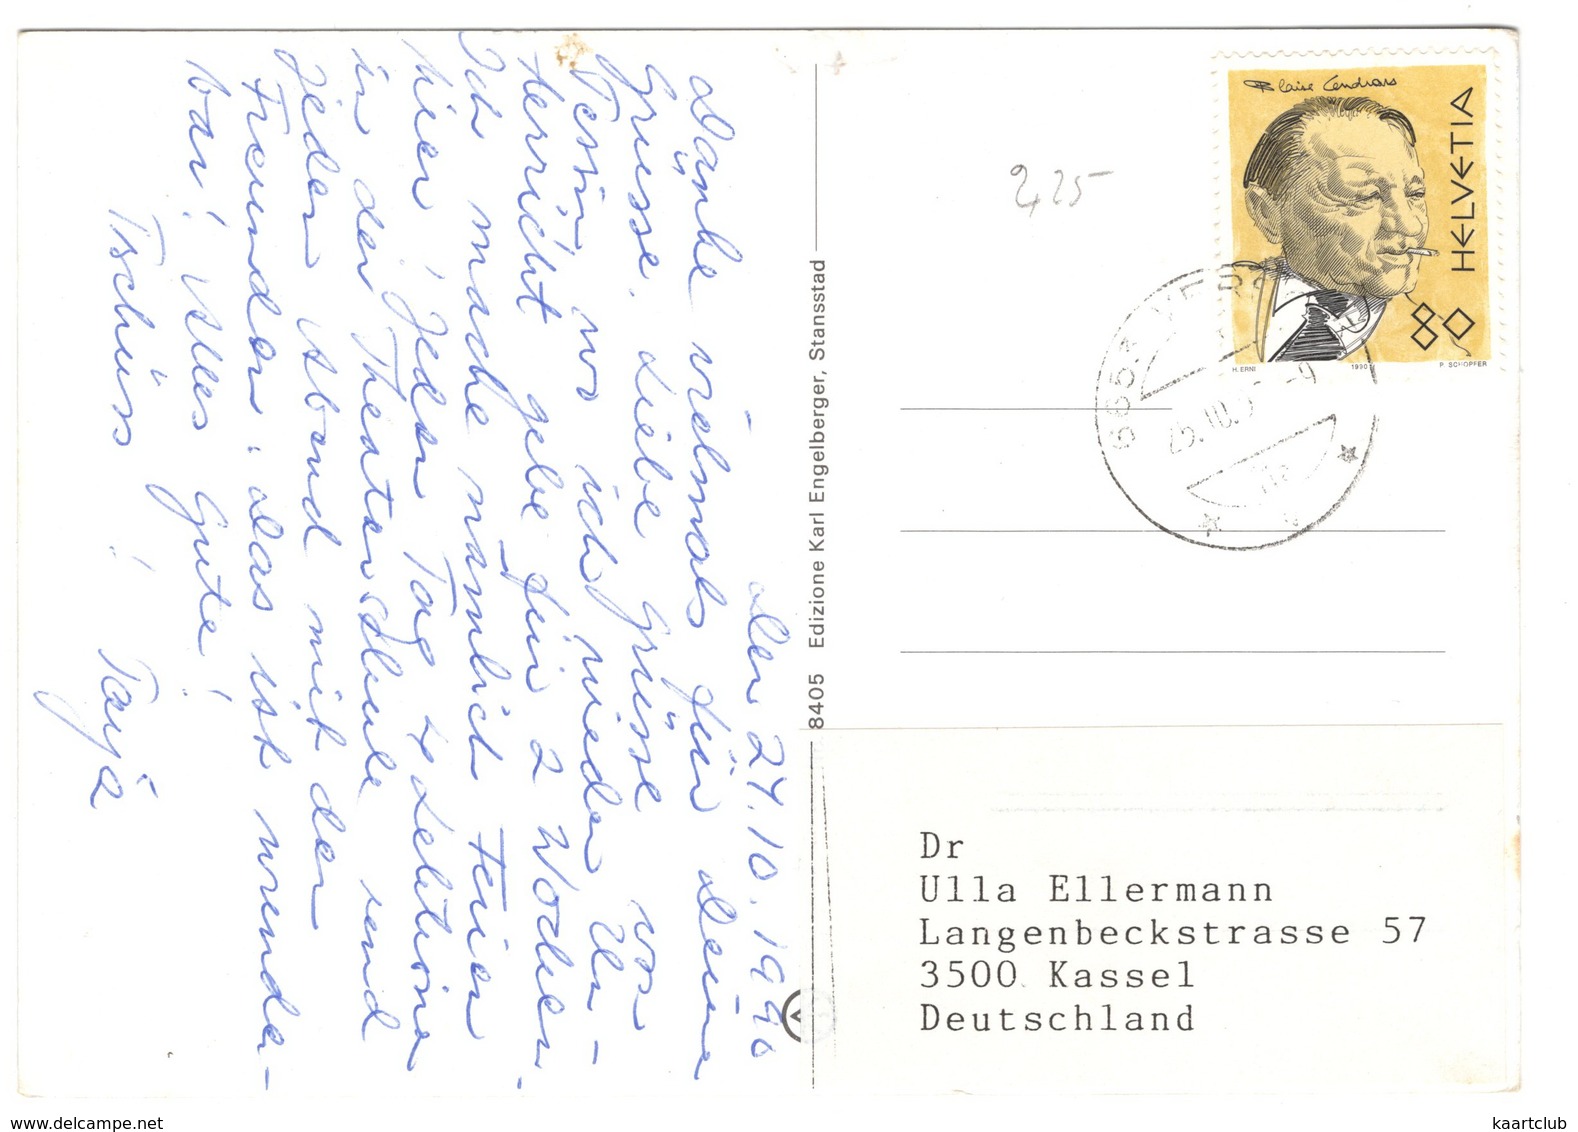 den 24.10.1990
Danke vielmals für Deine
Grüsse. Liebe Grüsse vom
Tessin wo ich wieder Un-
terricht gebe für 2 Wochen.
Ich mache nämlich Ferien
hier! Jeden Tag 4 Lektionen
in der Theaterschule und
jeden Abend mit den
Freunden: das ist wunder-
bar! Alles Gute!
Tschüss! Tanja
8405 Edizione Karl Engelberger, Stansstad
225-
Blaise Cendrars
HELVETIA
80
H. ERNI 1990 P. SCHOPFER
Dr
Ulla Ellermann
Langenbeckstrasse 57
3500 Kassel
Deutschland
www.delcampe.net
kaartclub